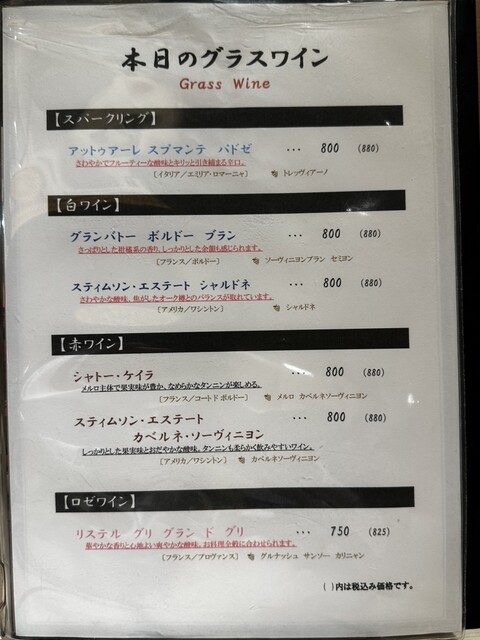 本日のグラスワイン
Grass Wine
【スパークリング】
アットゥアーレ スプマンテ パドゼ ・・・ 800 (880)
さわやかでフルーティーな酸味とキリッと引き締まる辛口。
[イタリア/エミリア・ロマーニャ] トレッヴィアーノ
【白ワイン】
グランバトー ボルドー ブラン ・・・ 800 (880)
さっぱりとした柑橘系の香り、しっかりとした余韻も感じられます。
[フランス/ボルドー] ソーヴィニヨンブラン セミヨン
スティムソン・エステート シャルドネ ・・・ 800 (880)
さわやかな酸味、焦がしたオーク樽とのバランスが取れています。
[アメリカ/ワシントン] シャルドネ
【赤ワイン】
シャトー・ケイラ ・・・ 800 (880)
メルロ主体で果実味が豊か、なめらかなタンニンが楽しめる。
[フランス/コートド ボルドー] メルロ カベルネソーヴィニヨン
スティムソン・エステート ・・・ 800 (880)
カベルネ・ソーヴィニヨン
しっかりとした果実味とおだやかな酸味、タンニンも柔らかく飲みやすいワイン。
[アメリカ/ワシントン] カベルネソーヴィニヨン
【ロゼワイン】
リステル グリ グラン ド グリ ・・・ 750 (825)
華やかな香りと心地よい爽やかな酸味、お料理全般に合わせられます。
[フランス/プロヴァンス] グルナッシュ サンソー カリニャン
( )内は税込み価格です。